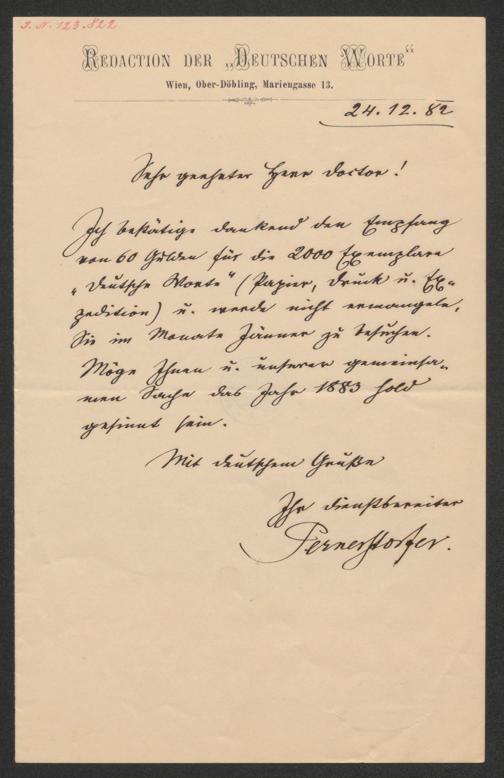 I. N. 123.822
REDACTION DER „DEUTSCHEN WORTE“
Wien, Ober-Döbling, Mariengasse 13.
24. 12. 82
Sehr geehrter Herr Doctor!
Ich bestätige dankend den Empfang
von 60 Gulden für die 2000 Exemplare
„Deutsche Worte“ (Papier, Druck u. Ex-
pedition) u. werde nicht ermangeln,
Sie im Monate Jänner zu besuchen.
Möge Ihnen u. unserer gemeinsa-
men Sache das Jahr 1883 hold
gesinnt sein.
Mit deutschem Gruße
Ihr dienstbereiter
Pernerstorfer.